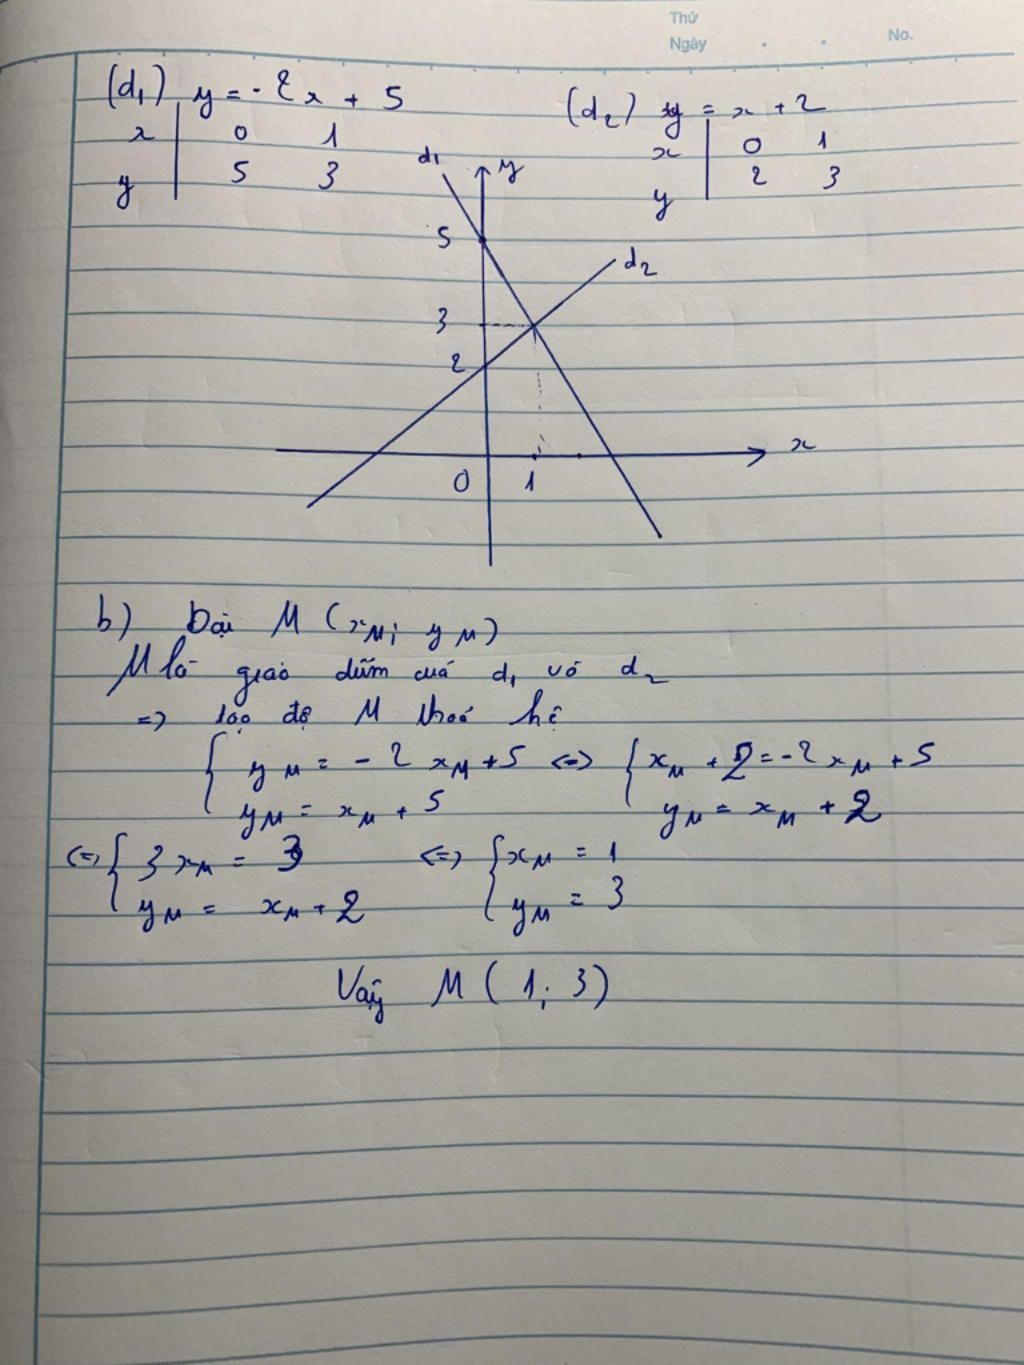 Thứ
Ngày . . No.
(d₁) y = -2x + 5
x 0 1
y 5 3
(d₂) y = x + 2
x 0 1
y 2 3
d₁ y
5
d₂
3
2
x
0 1
b) Gọi M (x_M; y_M)
M là giao điểm của d₁ và d₂
=> toạ độ M thoả hệ
{ y_M = -2x_M + 5 <=> { x_M + 2 = -2x_M + 5
y_M = x_M + 5 y_M = x_M + 2
<=> { 3x_M = 3 <=> { x_M = 1
y_M = x_M + 2 y_M = 3
Vậy M (1; 3)